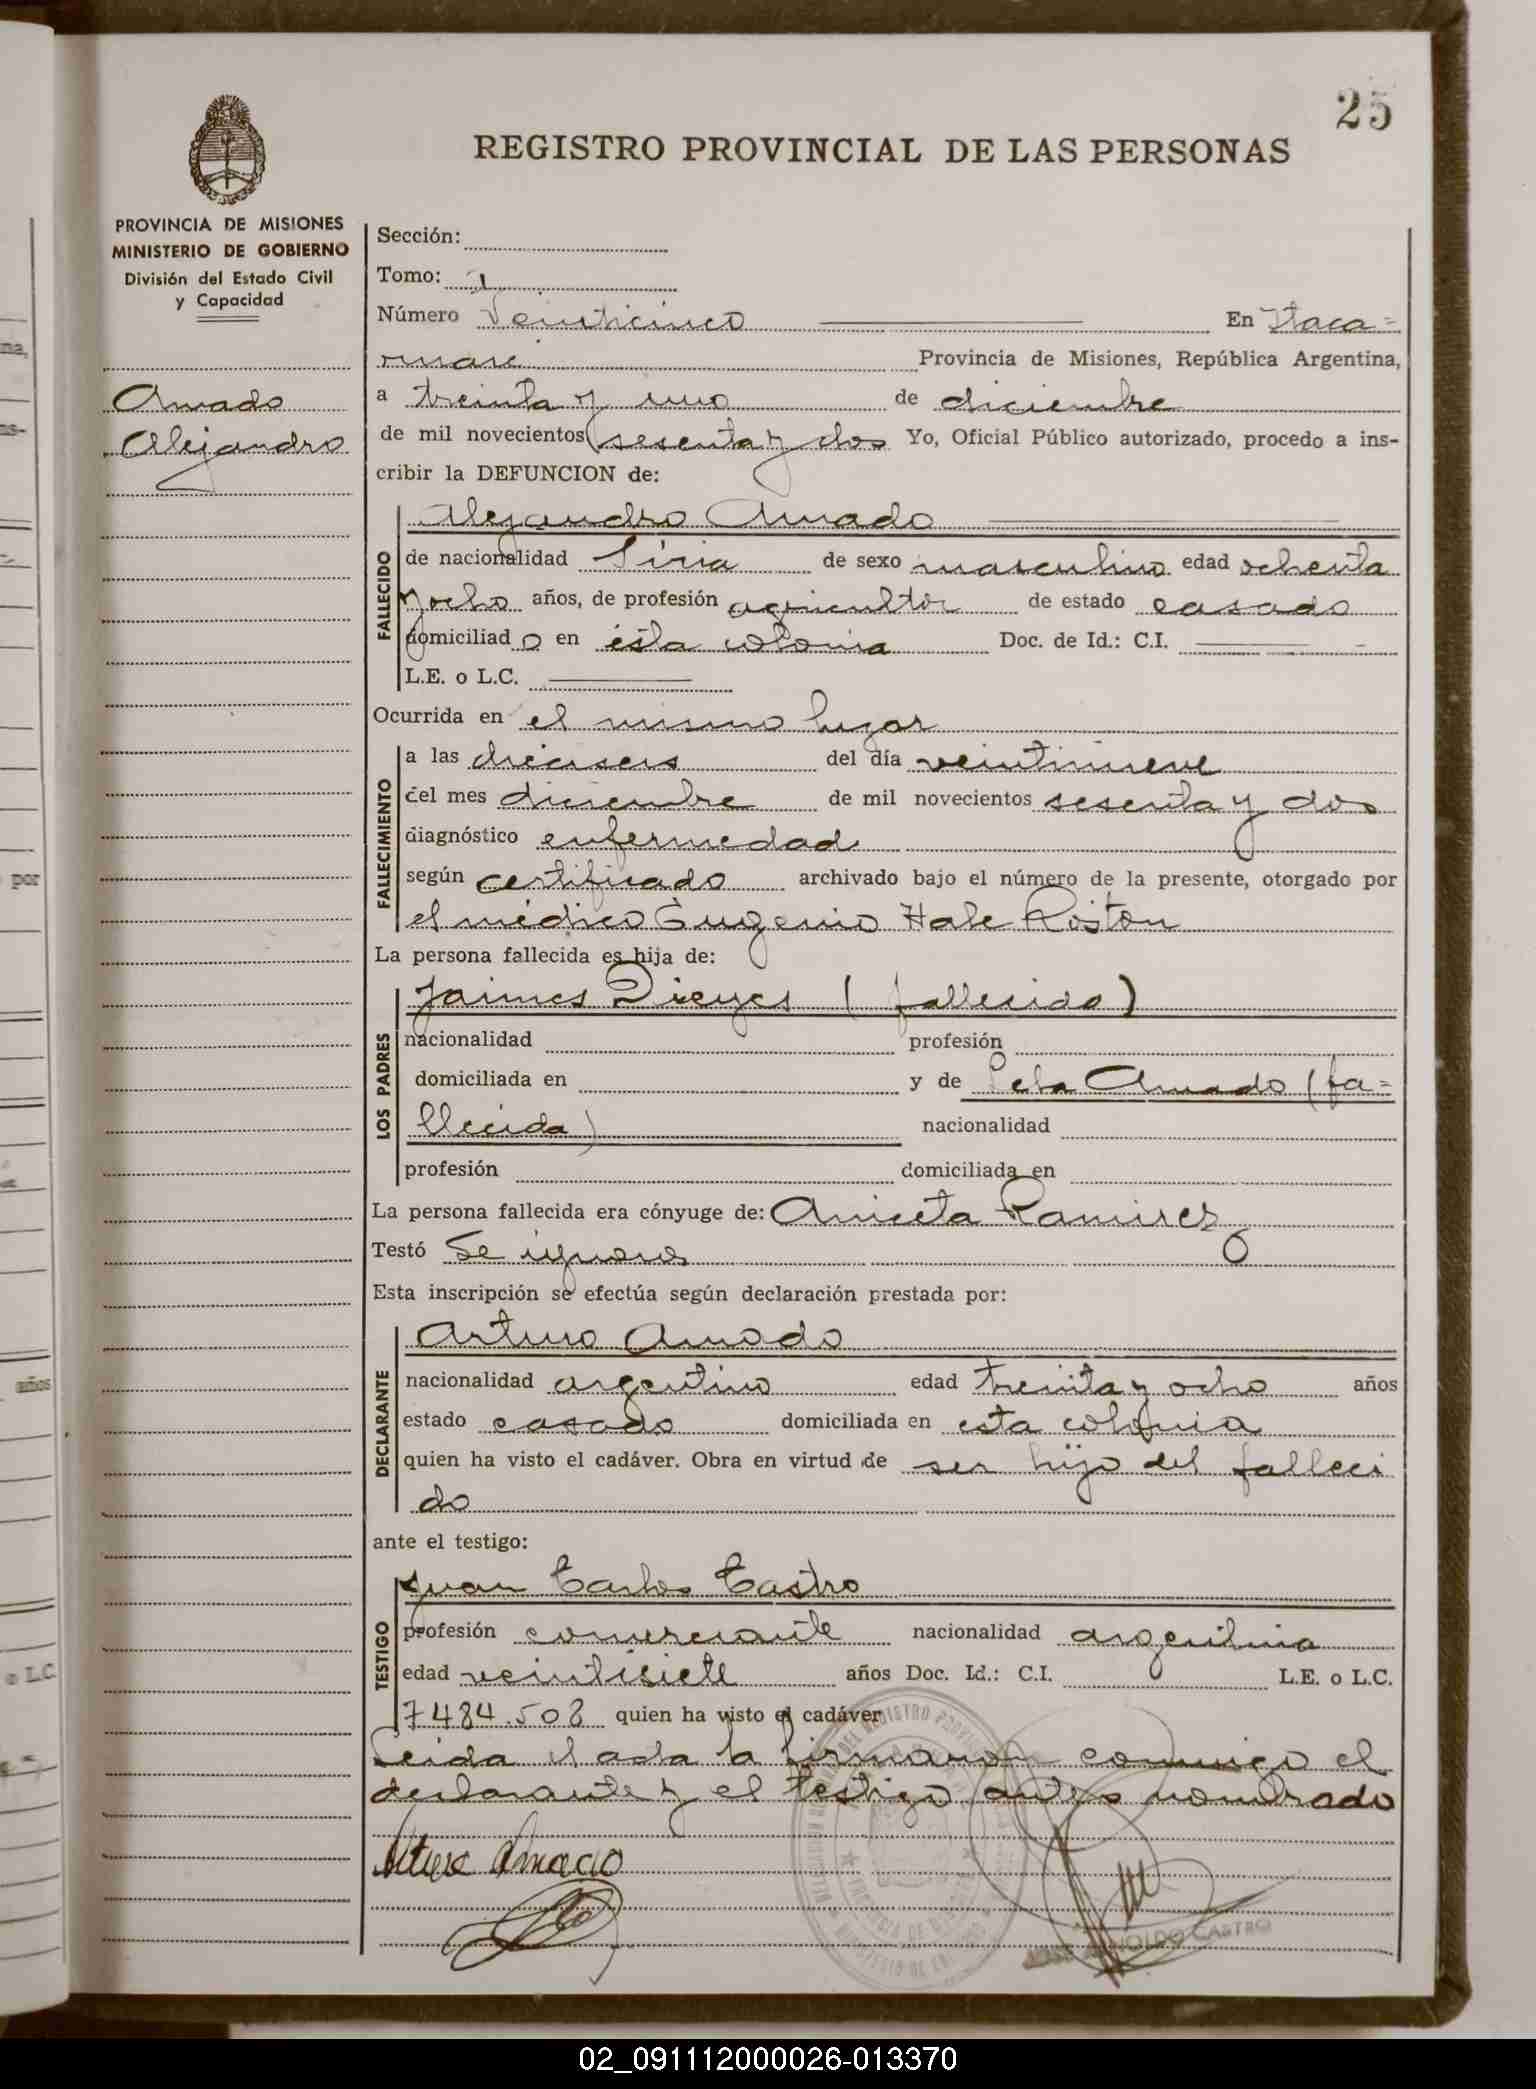 25
REGISTRO PROVINCIAL DE LAS PERSONAS
PROVINCIA DE MISIONES
MINISTERIO DE GOBIERNO
División del Estado Civil
y Capacidad
Amado
Alejandro
Sección:
Tomo: 1
Número Veinticinco En Itaca=
ruaré Provincia de Misiones, República Argentina,
a treinta y uno de diciembre
de mil novecientos sesenta y dos Yo, Oficial Público autorizado, procedo a ins-
cribir la DEFUNCION de:
FALLECIDO
Alejandro Amado
de nacionalidad Siria de sexo masculino edad ochenta
y ocho años, de profesión agricultor de estado casado
domiciliad o en esta colonia Doc. de Id.: C.I.
L.E. o L.C.
Ocurrida en el mismo lugar
FALLECIMIENTO
a las dieciseis del día veintinueve
del mes diciembre de mil novecientos sesenta y dos
diagnóstico enfermedad
según certificado archivado bajo el número de la presente, otorgado por
el médico Eugenio Hale Roston
La persona fallecida es hija de:
LOS PADRES
Jaimes Dieyes (fallecido)
nacionalidad profesión
domiciliada en y de Amado (fa=
llecida) nacionalidad
profesión domiciliada en
La persona fallecida era cónyuge de: Aniceta Ramirez
Testó Se ignora
Esta inscripción se efectúa según declaración prestada por:
DECLARANTE
Arturo Amado
nacionalidad argentino edad treinta y ocho años
estado casado domiciliada en esta colonia
quien ha visto el cadáver. Obra en virtud de ser hijo del falleci
do
ante el testigo:
TESTIGO
Juan Carlos Castro
profesión comerciante nacionalidad argentina
edad veintisiete años Doc. Id.: C.I. L.E. o L.C.
7484.508 quien ha visto el cadáver
Leida el acta la firmaron conmigo el
declarante y el testigo antes nombrado
Arturo Amado
CASTRO
por
años
o L.C.
02_091112000026-013370